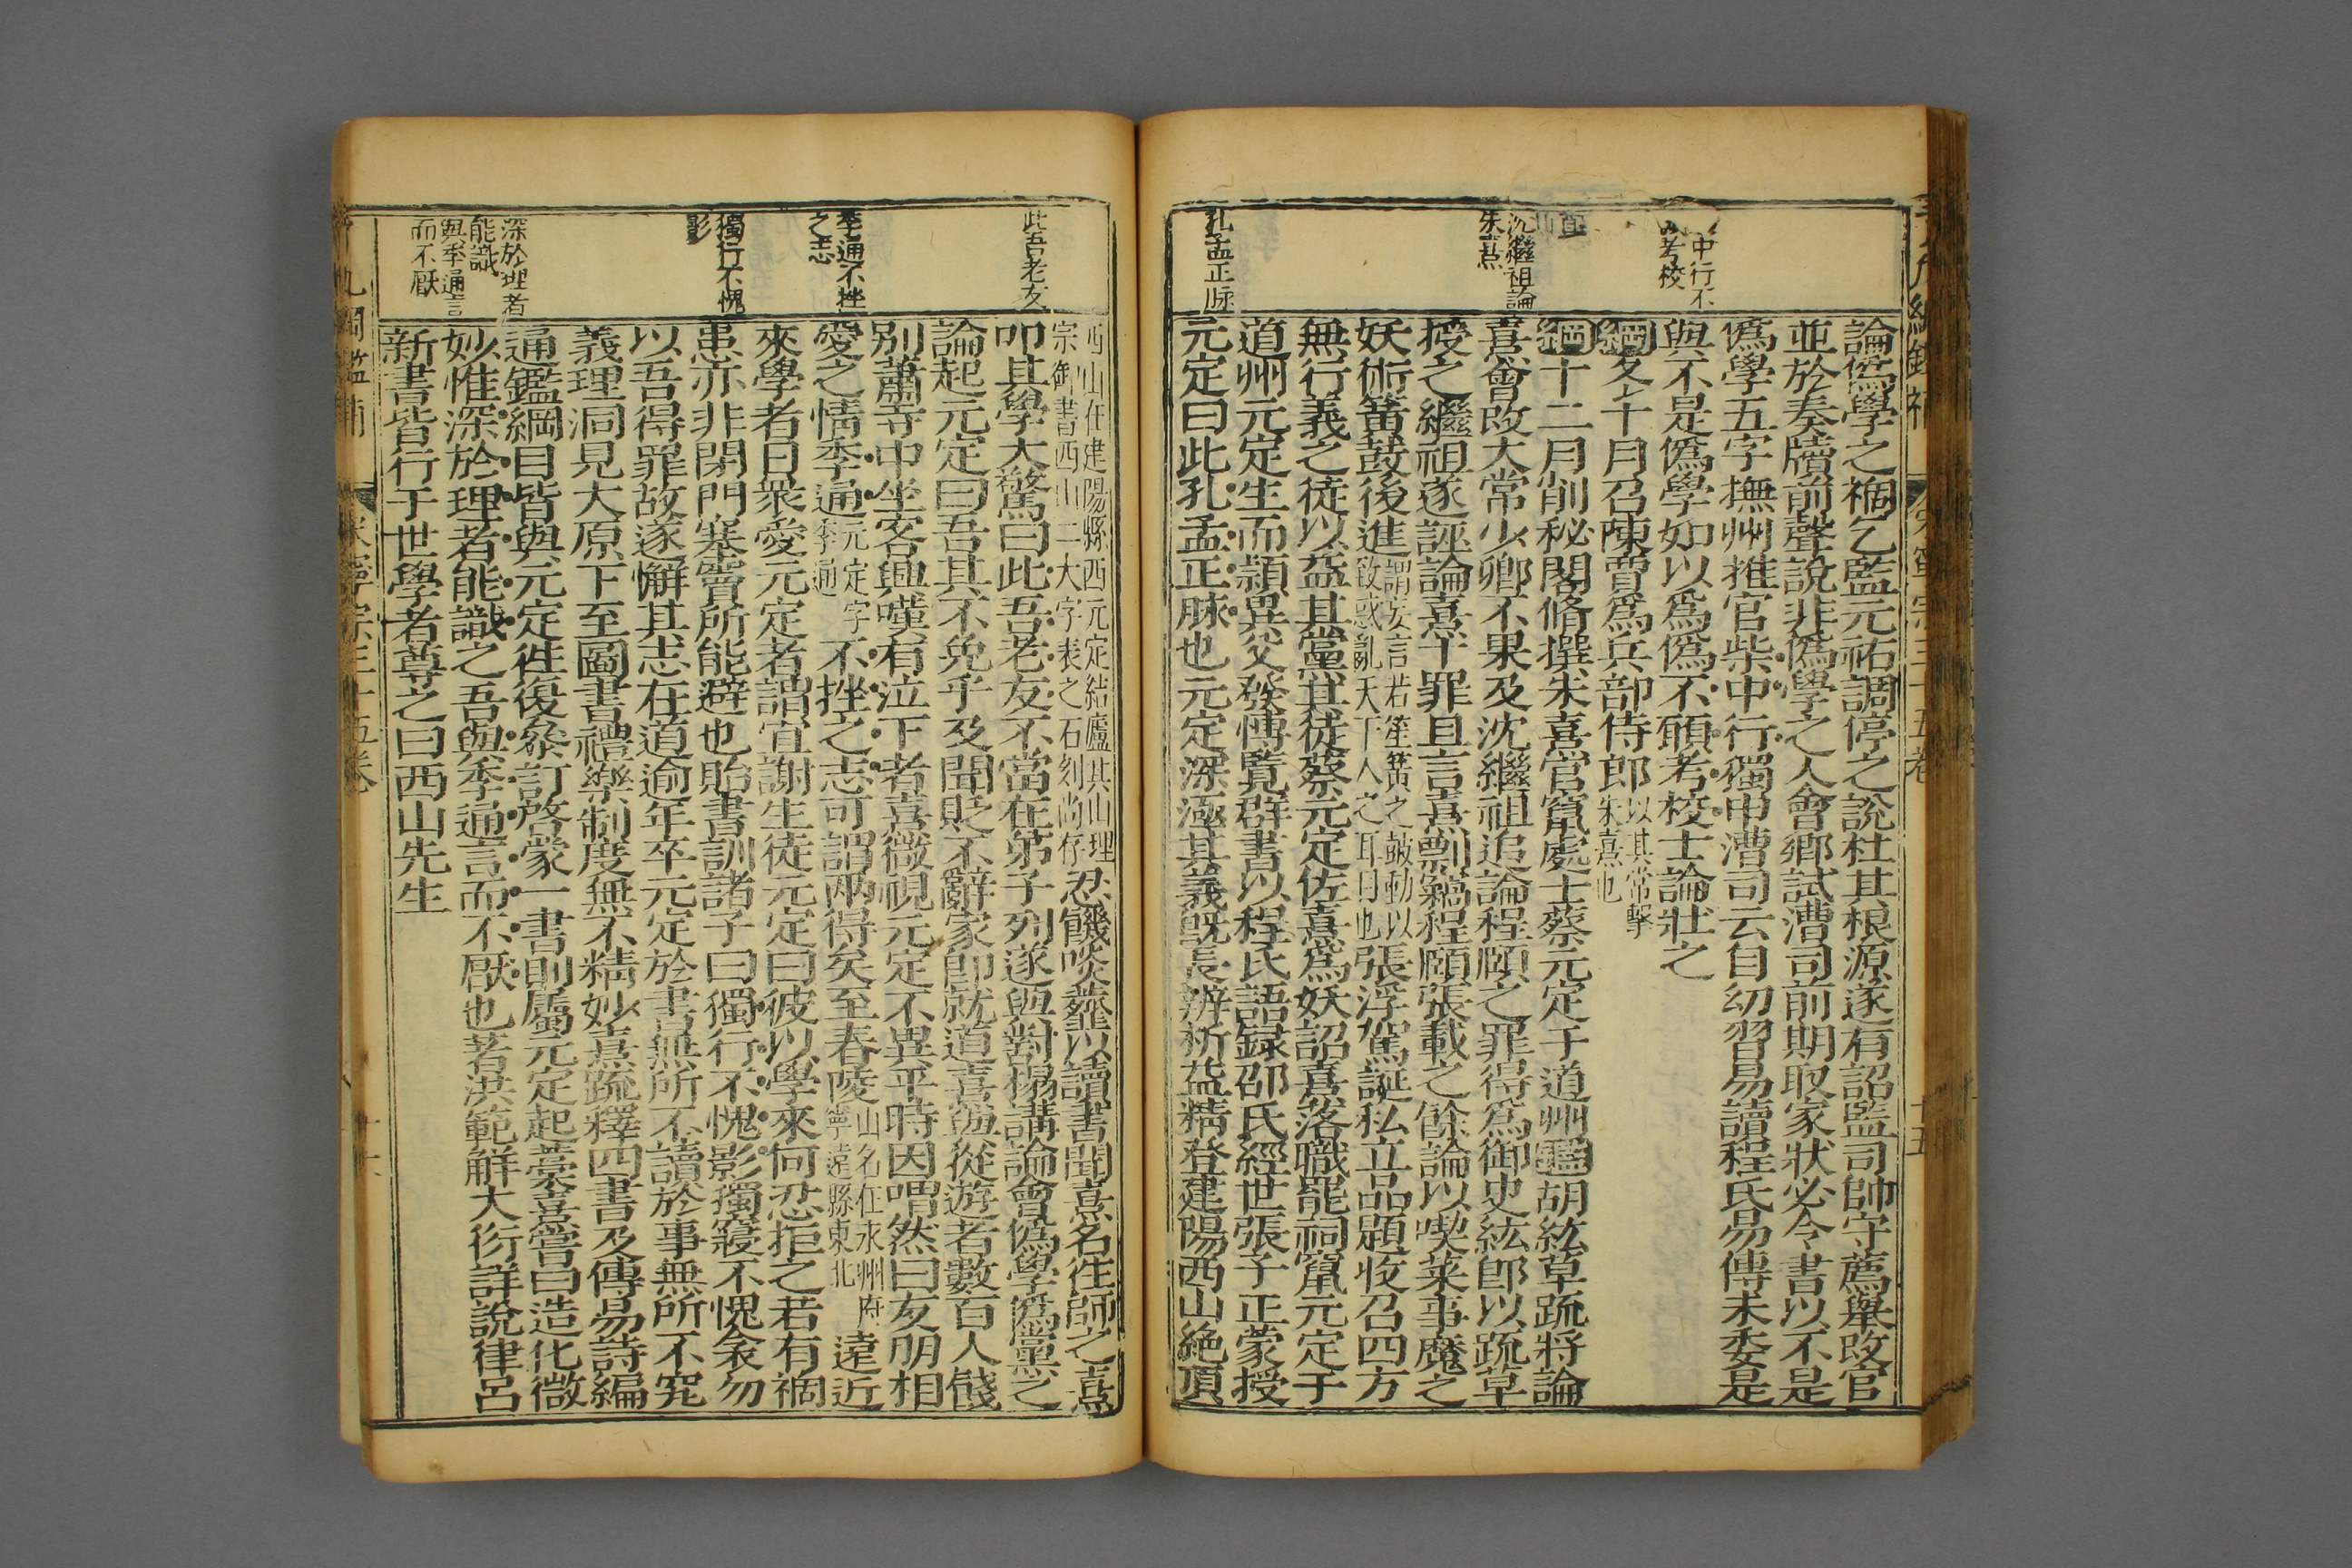 中行不
考校
沈繼祖論
朱熹
孔孟正脉
論僞學之禍乞監元祐調停之說杜其根源遂有詔監司帥守薦舉改官
並於奏牘前聲說非僞學之人會鄉試漕司前期取家狀必令書以不是
僞學五字撫州推官柴中行獨申漕司云自幼習易讀程氏易傳未委是
與不是僞學如以爲僞不願考校士論壯之
綱冬十月召陳賈爲兵部侍郎以其常擊朱熹也
綱十二月削秘閣脩撰朱熹官竄處士蔡元定于道州鑑胡紘草疏將論
熹會改太常少卿不果及沈繼祖追論程頤之罪得爲御史紘卽以疏草
授之繼祖遂誣論熹十罪且言熹剽竊程頤張載之餘論以喫菜事魔之
妖術簧鼓後進謂妄言若笙簧之鼓動以致惑亂天下人之耳目也張浮駕誕私立品題收召四方
無行義之徒以益其黨其徒蔡元定佐熹爲妖詔熹落職罷祠竄元定于
道州元定生而頴異父發愽覽群書以程氏語録邵氏經世張子正蒙授
元定曰此孔孟正脉也元定深涵其義旣長辨析益精登建陽西山絶頂
此吾老友
季通不挫
之志
獨行不愧
影
深於理者
能識
與季通言
而不厭
西山在建陽縣西元定結廬其山理宗御書西山二大字表之石刻尚存忍饑啖薺以讀書聞熹名徃師之熹
叩其學大驚曰此吾老友不當在弟子列遂與對榻講論會僞學爲黨之
論起元定曰吾其不免乎及聞貶不辭家卽就道熹與從遊者數百人餞
別蕭寺中坐客興嘆有泣下者熹微視元定不異平時因喟然曰友朋相
愛之情季通元定字季通不挫之志可謂兩得矣至舂陵山名在永州府寧遠縣東北遠近
來學者日衆愛元定者謂宜謝生徒元定曰彼以學來何忍拒之若有禍
患亦非閉門塞竇所能避也貽書訓諸子曰獨行不愧影獨寢不愧衾勿
以吾得罪故遂懈其志在道逾年卒元定於書無所不讀於事無所不究
義理洞見大原下至圖書禮樂制度無不精妙熹疏釋四書及傳易詩編
通鑑綱目皆與元定徃復叅訂啓蒙一書則屬元定起藁熹嘗曰造化微
妙惟深於理者能識之吾與季通言而不厭也著洪範解大衍詳說律呂
新書皆行于世學者尊之曰西山先生